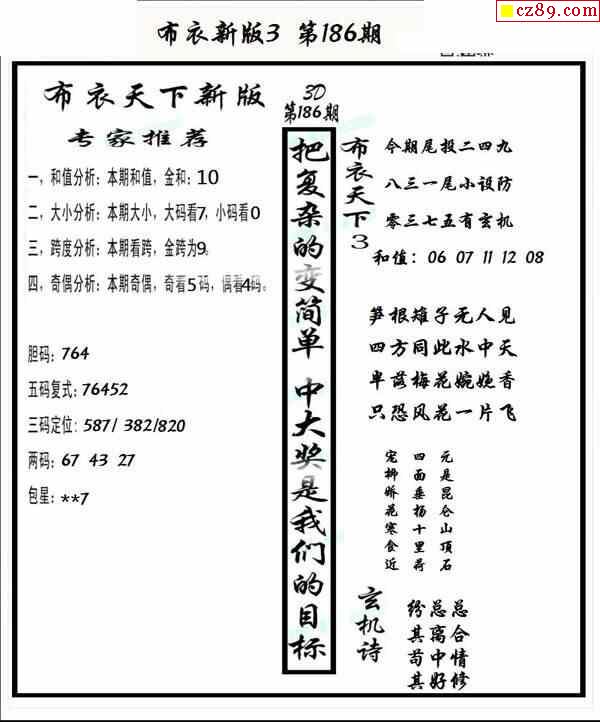 cz89.com
布衣新版3 第186期
布衣天下新版
专家推荐
一，和值分析：本期和值，金和：10
二，大小分析：本期大小，大码看7，小码看0
三，跨度分析：本期看跨，金跨为9。
四，奇偶分析：本期奇偶，奇看5码，偶看4码。
胆码：764
五码复式：76452
三码定位：587/ 382/820
两码：67 43 27
包星：**7
3D
第186期
把复杂的变简单 中大奖是我们的目标
布衣天下3
今期尾投二四九
八三一尾小设防
零三七五有玄机
和值：06 07 11 12 08
笋根雉子无人见
四方同此水中天
梅花婉娩香
只恐风花一片飞
元是昆仑山顶石
四面垂杨十里荷
宠柳娇花寒食近
玄机诗
纷总总
其离合
苟中情
其好修